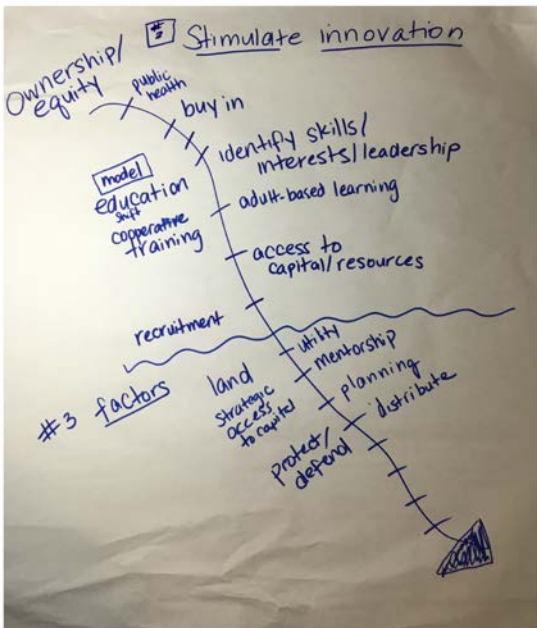 #2 Stimulate innovation
Ownership/
equity
public
health
buy in
identify skills/
interests/leadership
model
education
shift
cooperative
training
adult-based learning
access to
capital/resources
recruitment
utility
mentorship
#3 factors
land
strategic
access
to capital
planning
distribute
protect/
defend